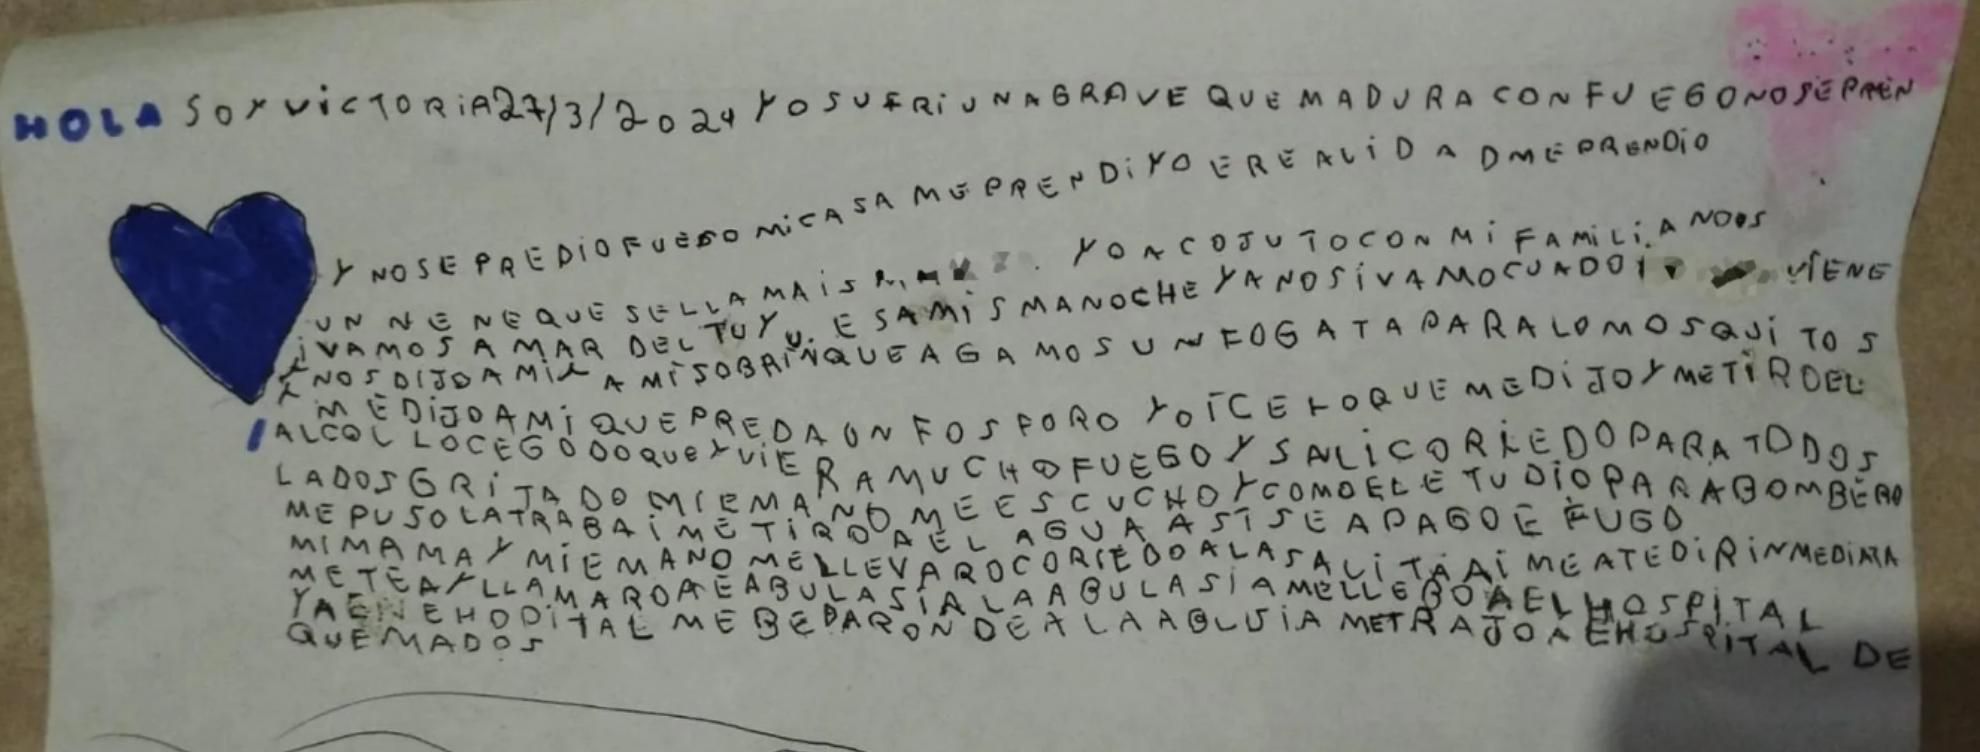 HOLA SOY VICTORIA 27/3/2024 YO SUFRI UNA GRAVE QUEMADURA CON FUEGO NO SE PREN
Y NO SE PREDIO FUEGO MI CASA ME PRENDI YO E REALIDAD ME PRENDIO
UN NENE QUE SE LLAMA YO ACOJUTO CON MI FAMILIA NOOS
IVAMOS A MAR DEL TUYU. ESA MISMA NOCHE YA NOS IVAMO CUADO VIENE
Y NOS DIJO A MI Y A MI SOBRIN QUE AGAMOS UN FOGATA PARA LO MOSQUITOS
Y ME DIJO A MI QUE PREDA UN FOSFORO YO ICE LO QUE ME DIJO Y ME TIRO EL
ALCOL LO CEGO DO QUE Y VIERA MUCHO FUEGO Y SALI CORIEDO PARA TODOS
LADOS GRITADO MI EMANO ME ESCUCHO Y COMO EL ETUDIO PARA BOMBERO
ME PUSO LA TRABA I ME TIRO A EL AGUA ASI SE APAGO E FUGO
MI MAMA Y MI EMANO ME LLEVARO CORIEDO A LA SALITA AI ME ATEDIR INMEDIATA
METE A Y LLAMARO A E ABULASIA LA ABULASIA ME LLEGO A EL HOSPITAL
YA EN E HOPITAL ME BEPARON DE A LA ABLUSIA ME TRAJO A E HOSPITAL DE
QUEMADOS